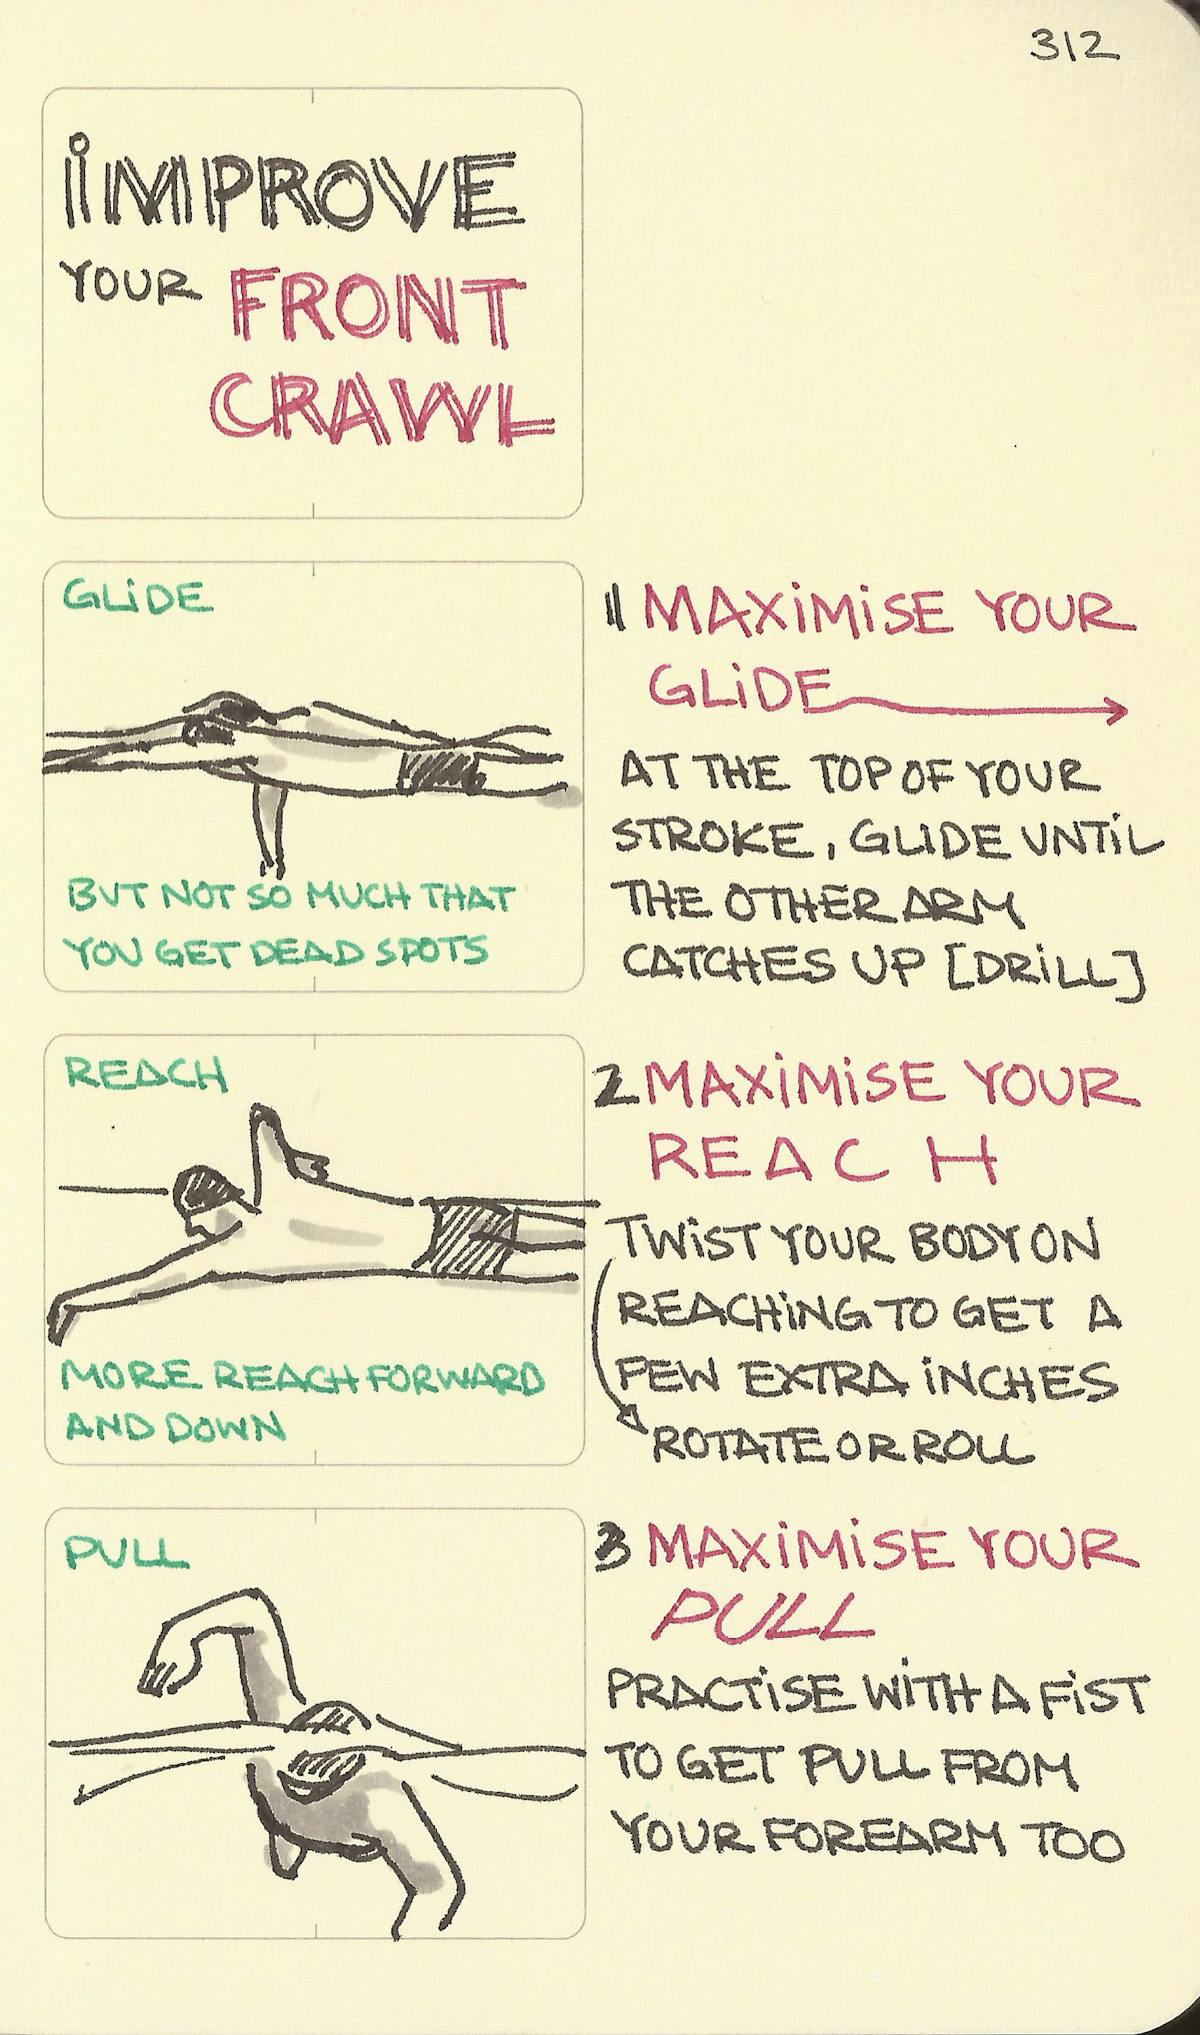 312
iMPROVE
YOUR FRONT
CRAWL
GLiDE
BUT NOT SO MUCH THAT
YOU GET DEAD SPOTS
1 MAXiMiSE YOUR
GLiDE
AT THE TOP OF YOUR
STROKE, GLIDE UNTiL
THE OTHER ARM
CATCHES UP [DRiLL]
REACH
MORE REACH FORWARD
AND DOWN
2 MAXiMiSE YOUR
REACH
TWiST YOUR BODY ON
REACHiNG TO GET A
FEW EXTRA iNCHES
ROTATE OR ROLL
PULL
3 MAXiMiSE YOUR
PULL
PRACTiSE WiTH A FiST
TO GET PULL FROM
YOUR FOREARM TOO